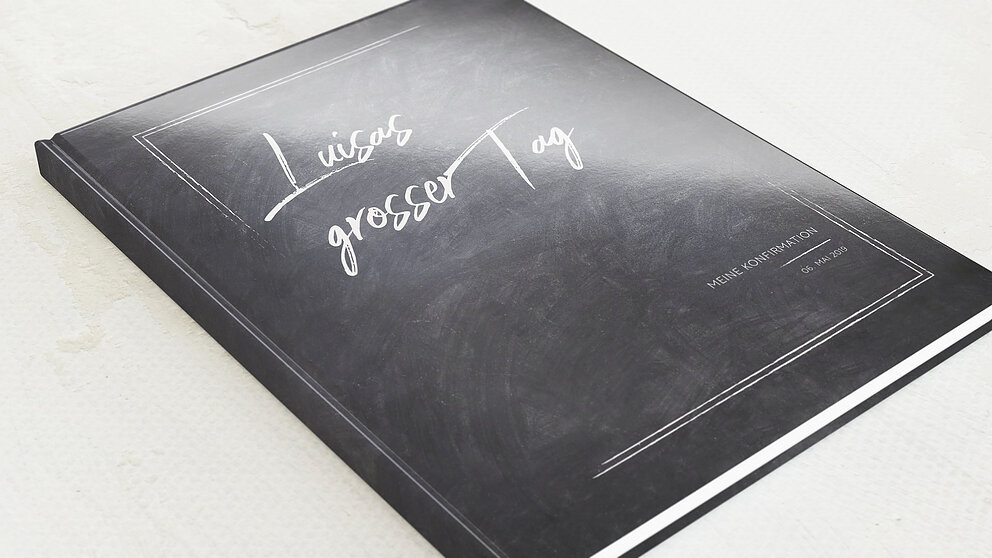 Luisas
grosser Tag
MEINE KONFIRMATION
06. MAI 2019